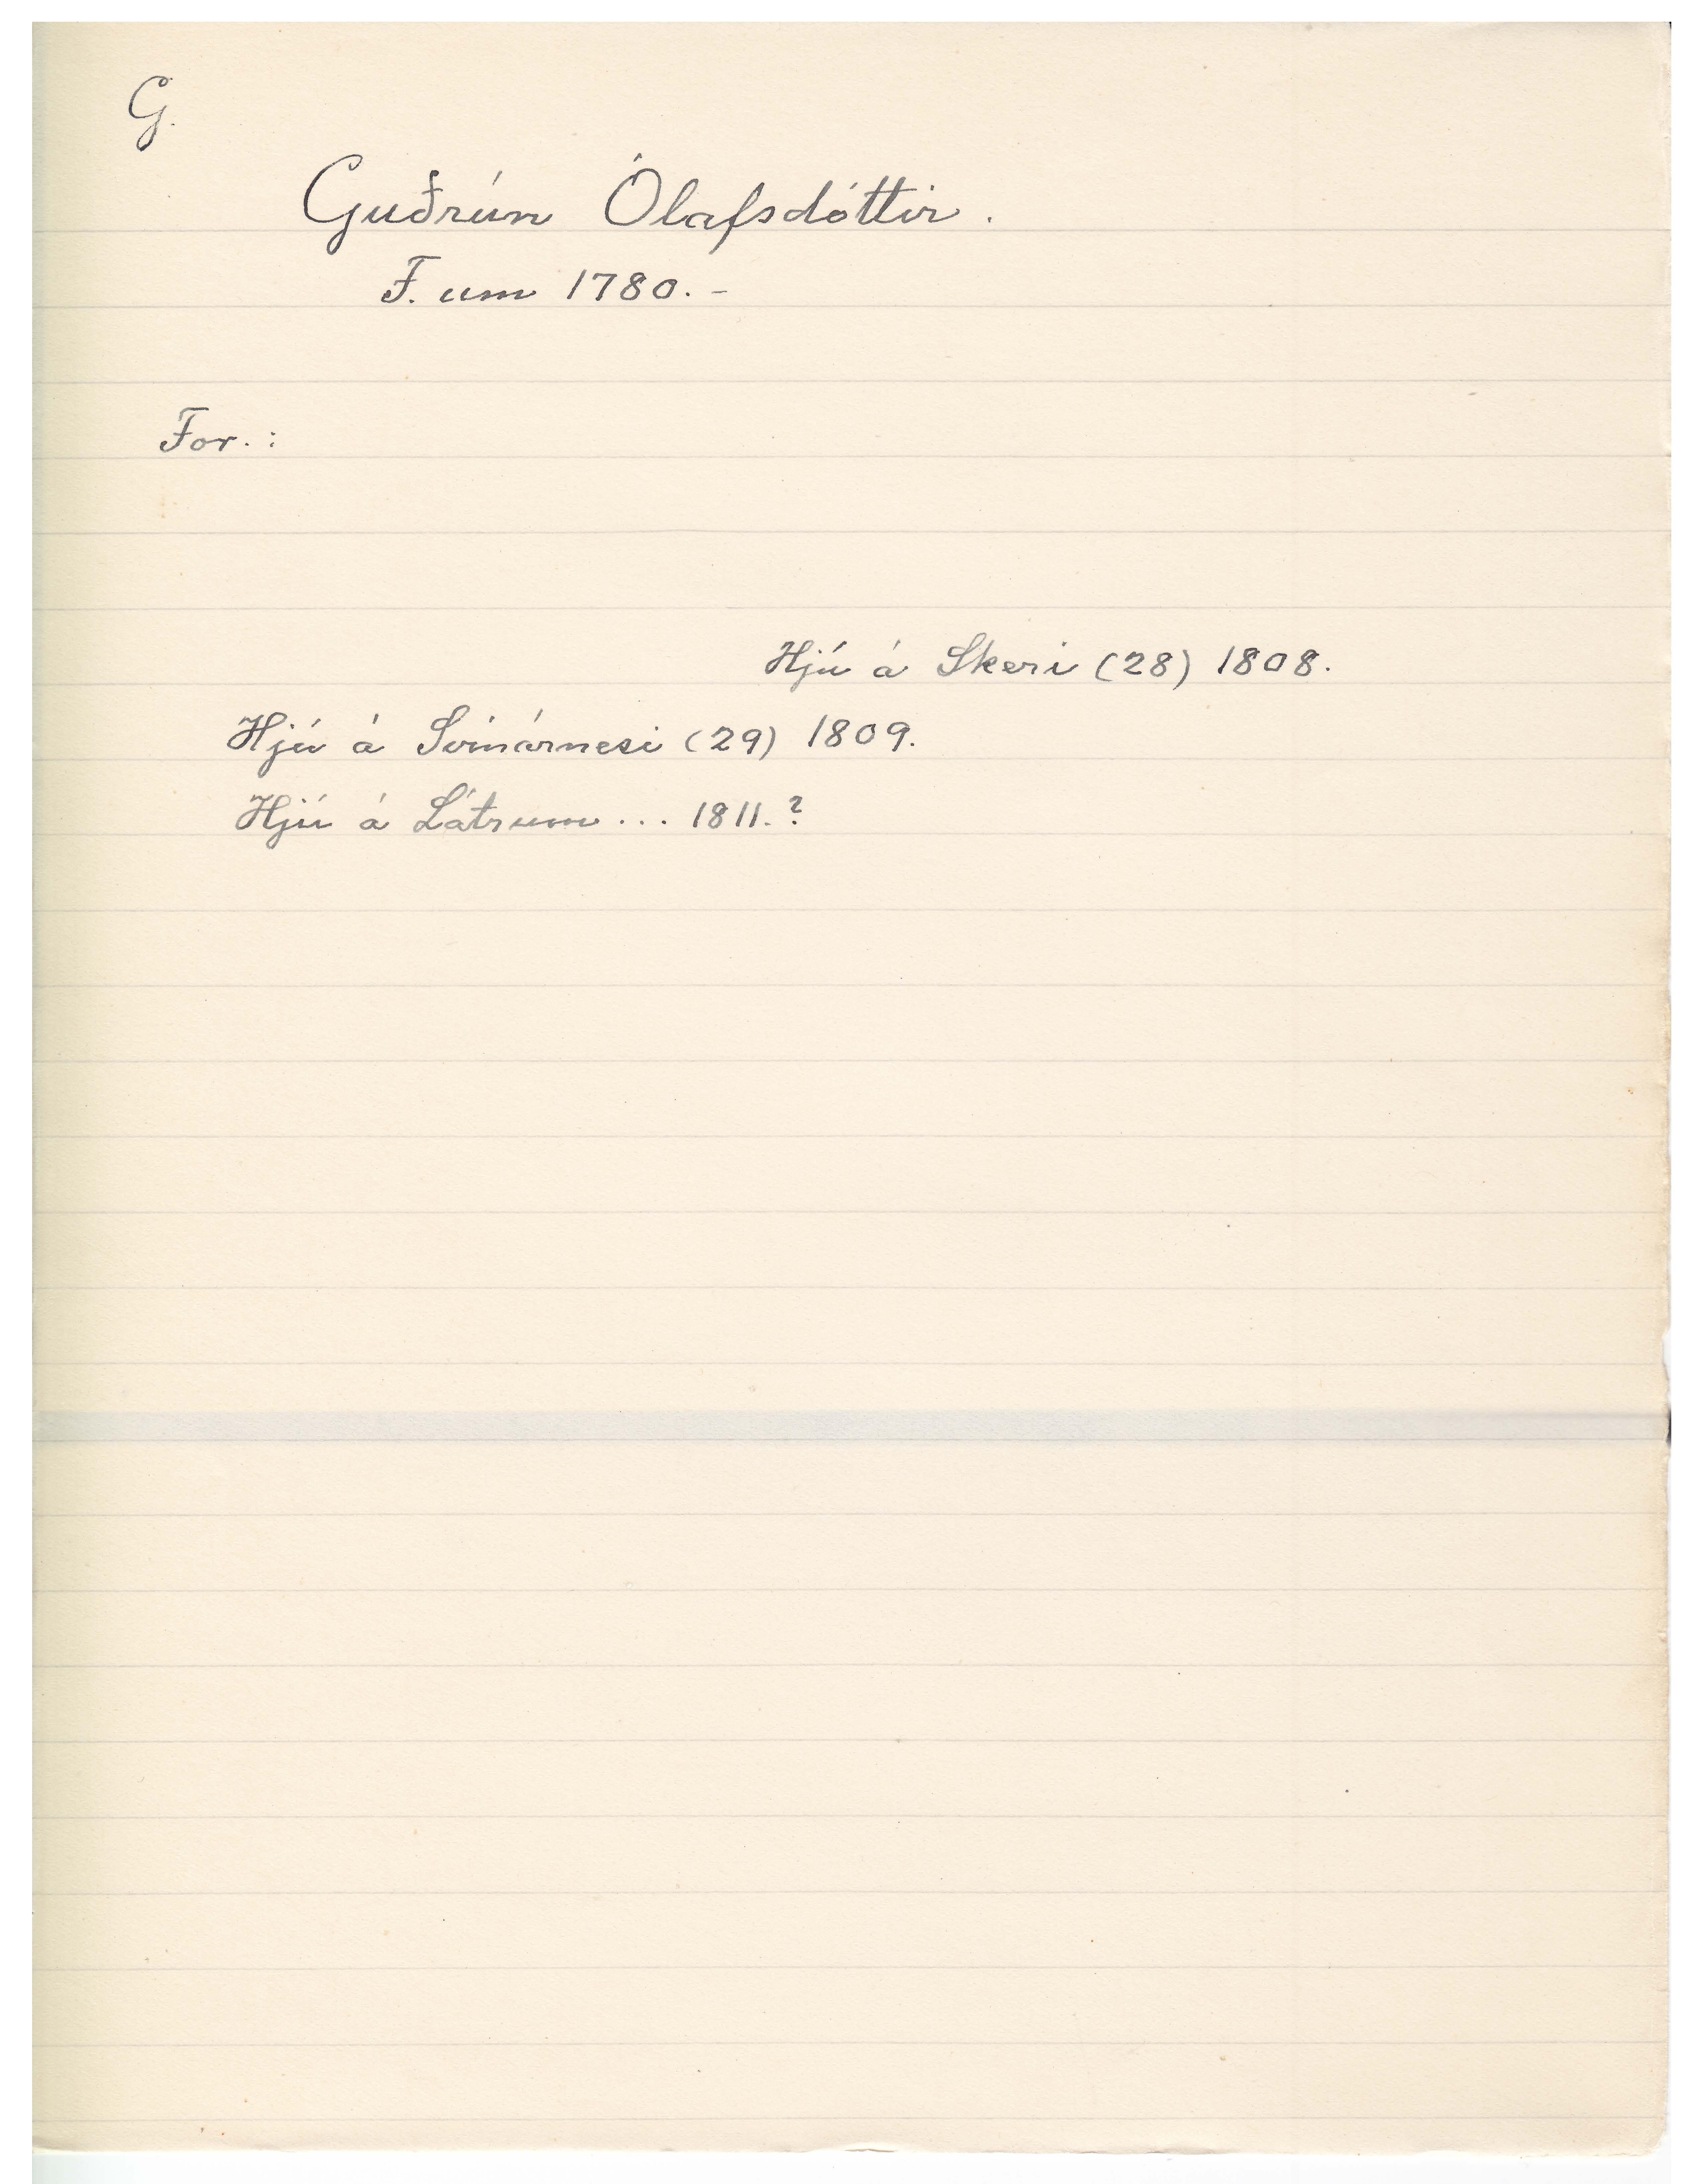 G.
Guðrún Ólafsdóttir.
F. um 1780. -
For. :
Hjú á Skeri (28) 1808.
Hjú á Svínárnesi (29) 1809.
Hjú á Látrum ... 1811. ?